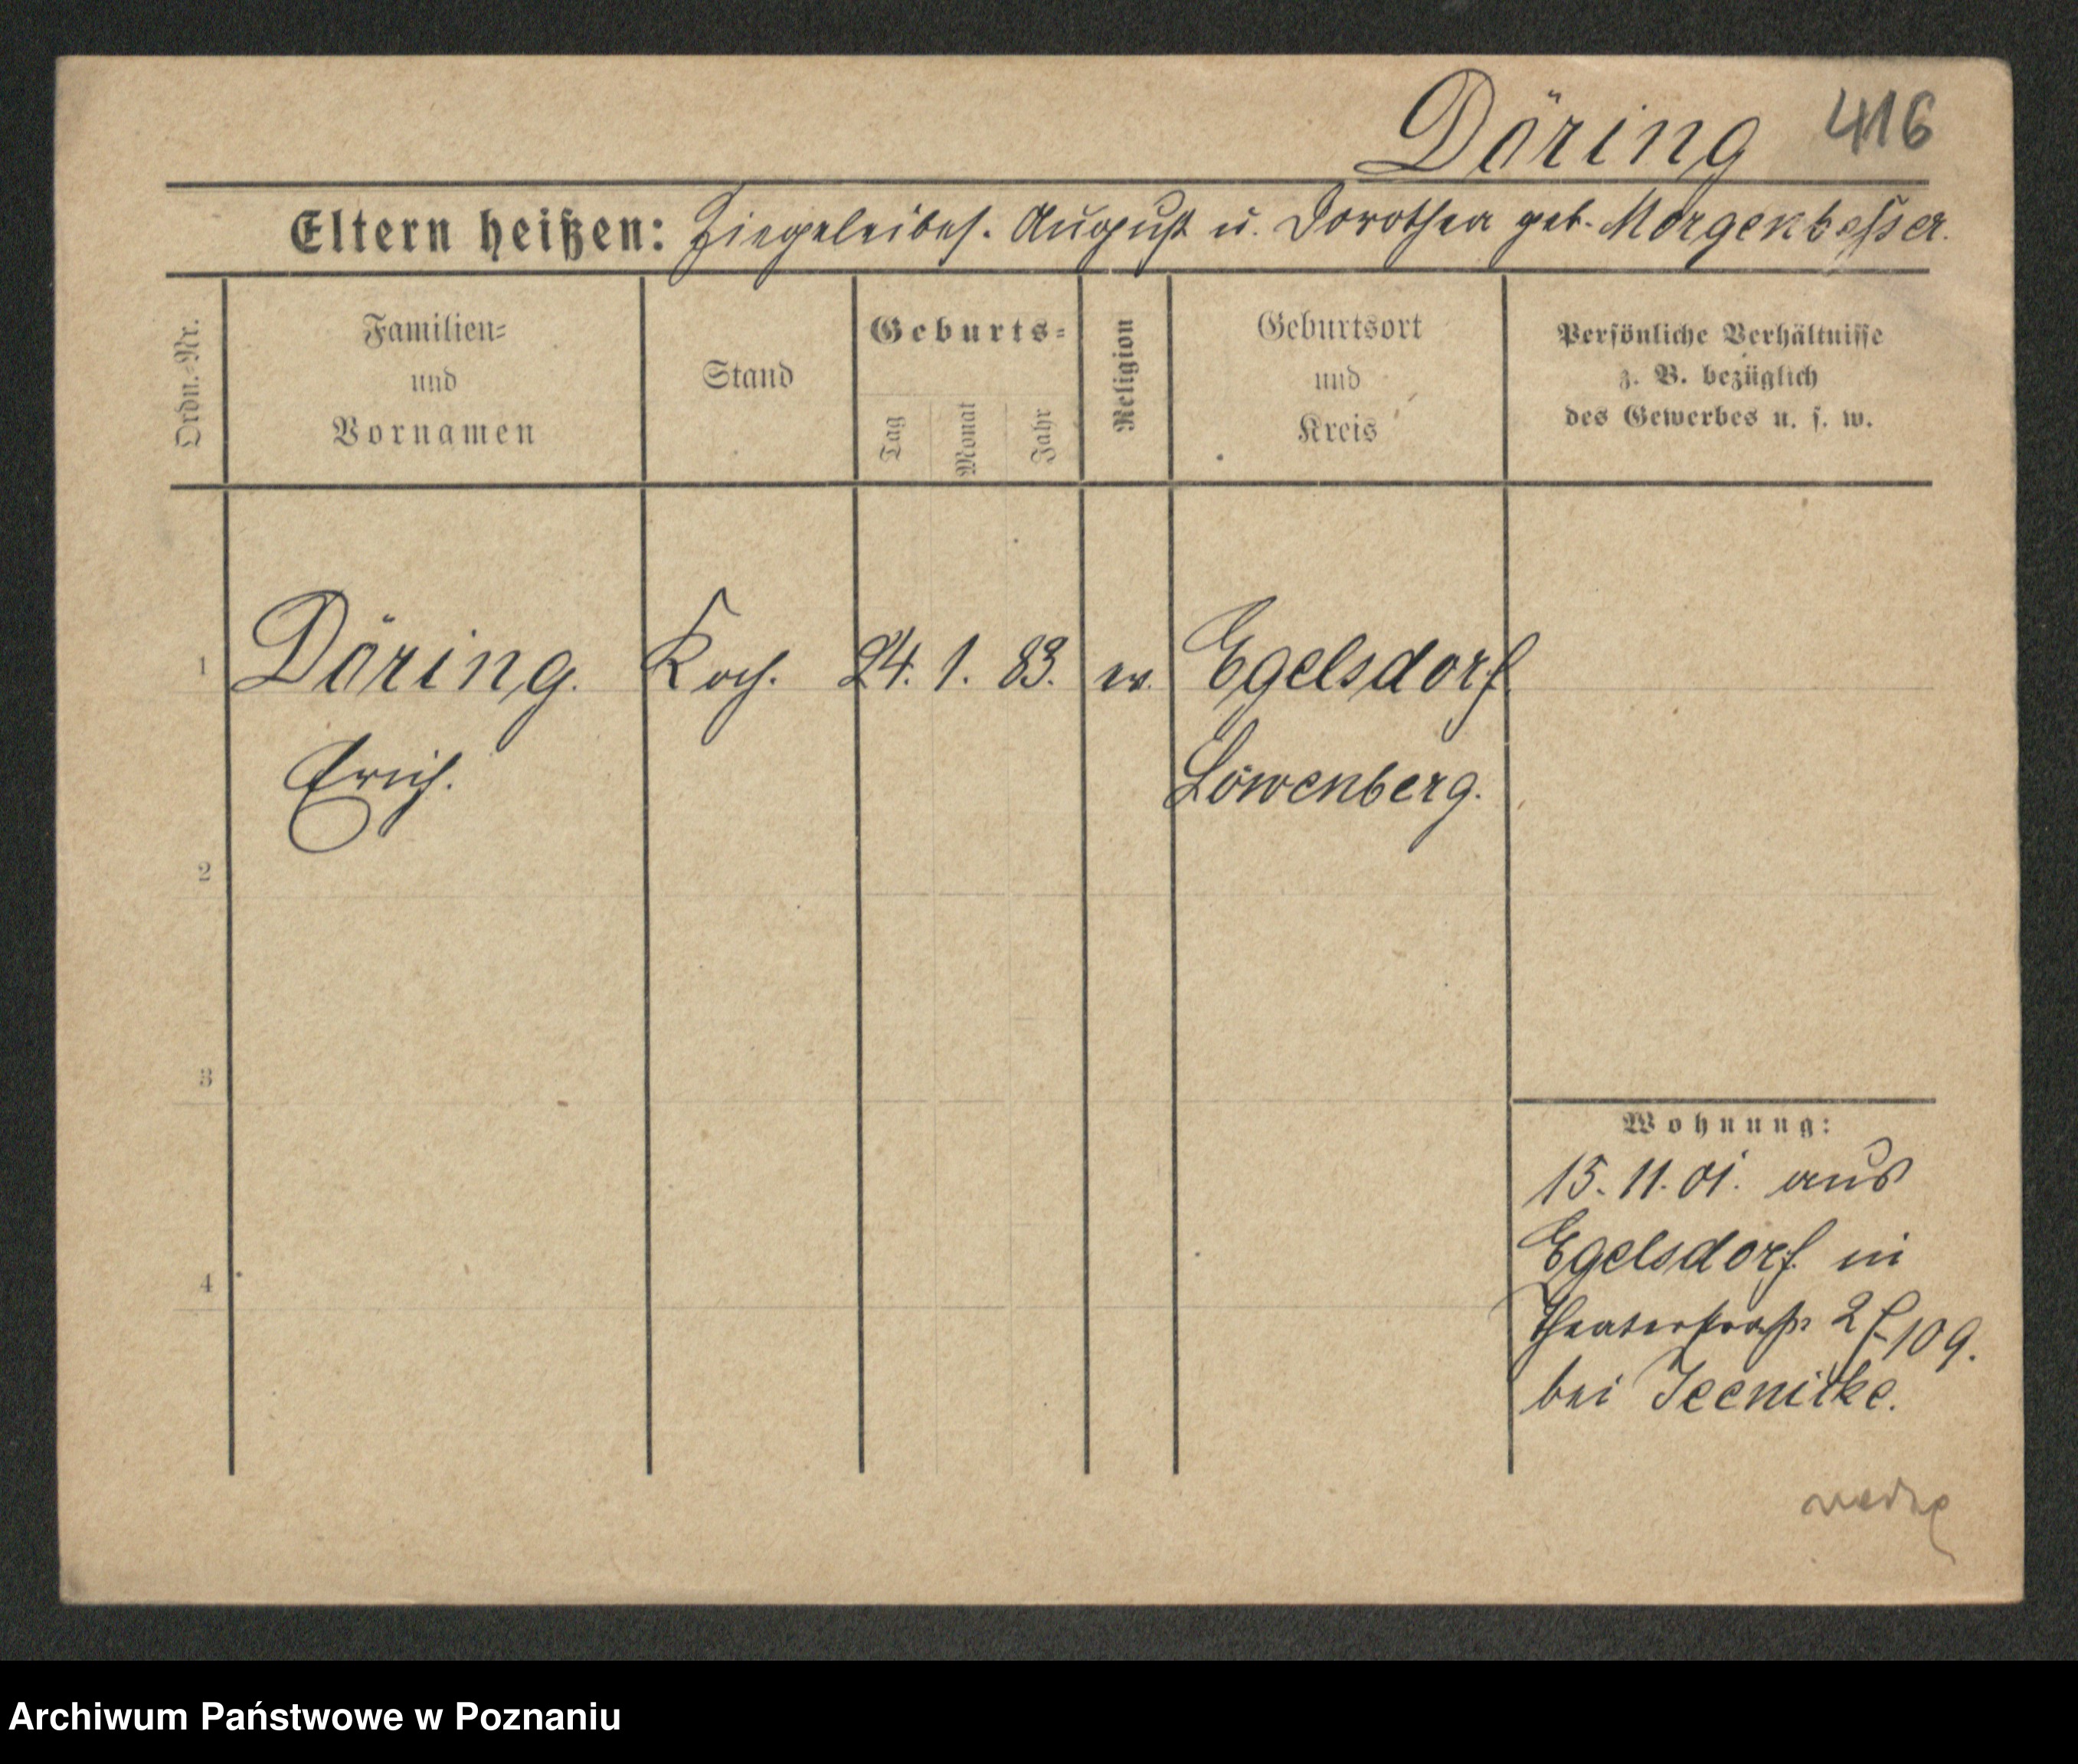 Döring 416
Eltern heißen: Ziegeleibes. August u. Dorothea geb. Morgenbesser.
Ordn.-Nr.
Familien-
und
Vornamen
Stand
Geburts-
Tag
Monat
Jahr
Religion
Geburtsort
und
Kreis
Persönliche Verhältnisse
z. B. bezüglich
des Gewerbes u. s. w.
1 Döring. Koch. 24. 1. 83. ev. Egelsdorf.
Erich. Löwenberg.
2
3
Wohnung:
15. 11. 01. aus
Egelsdorf. in
4
Theaterstraße 2 109.
bei
Archiwum Państwowe w Poznaniu